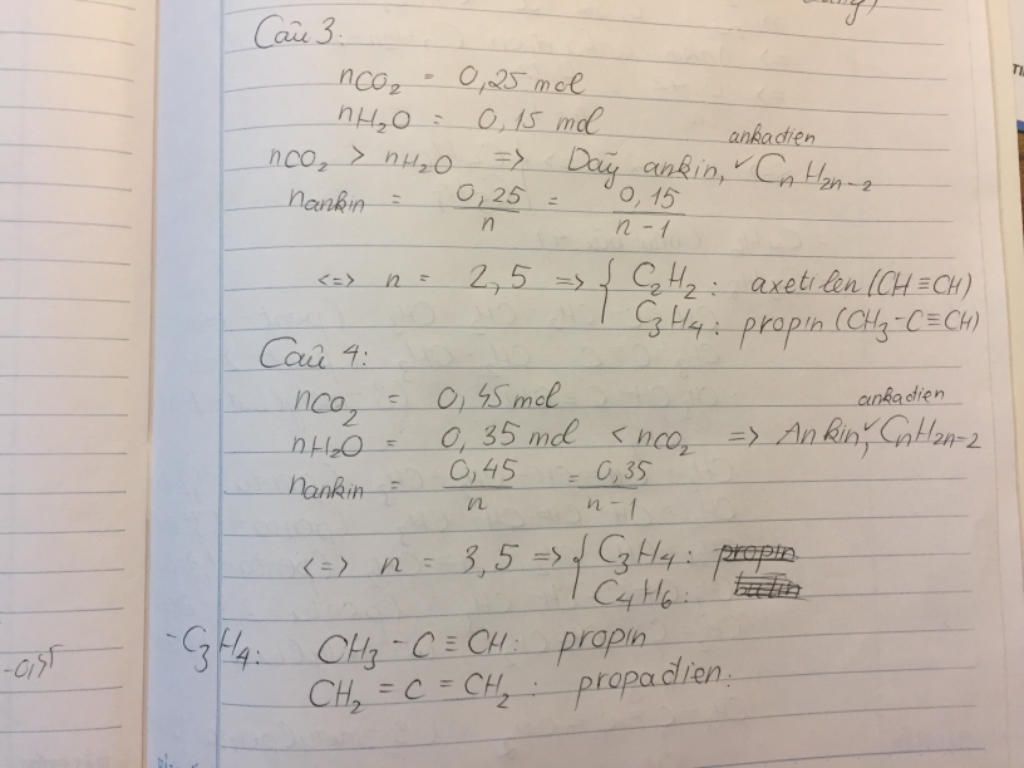 Câu 3:
nCO₂ = 0,25 mol
nH₂O = 0,15 mol
ankadien
nCO₂ > nH₂O => Dãy ankin, ✓ CnH2n-2
nankin = 0,25/n = 0,15/n-1
<=> n = 2,5 => { C₂H₂: axetilen (CH≡CH)
C₃H₄: propin (CH₃-C≡CH)
Câu 4:
nCO₂ = 0,45 mol
ankadien
nH₂O = 0,35 mol < nCO₂ => Ankin, ✓ CnH2n-2
nankin = 0,45/n = 0,35/n-1
<=> n = 3,5 => { C₃H₄: propin
C₄H₆:
- C₃H₄: CH₃-C≡CH: propin
CH₂=C=CH₂: propadien.